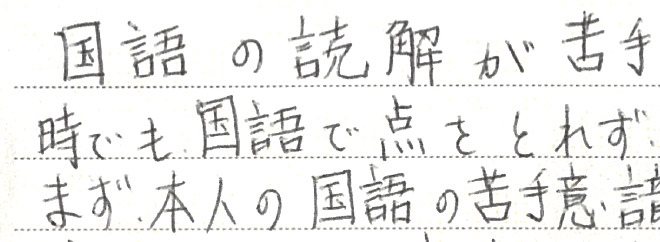 国語の読解が苦手
時でも、国語で点をとれず、
まず、本人の国語の苦手意